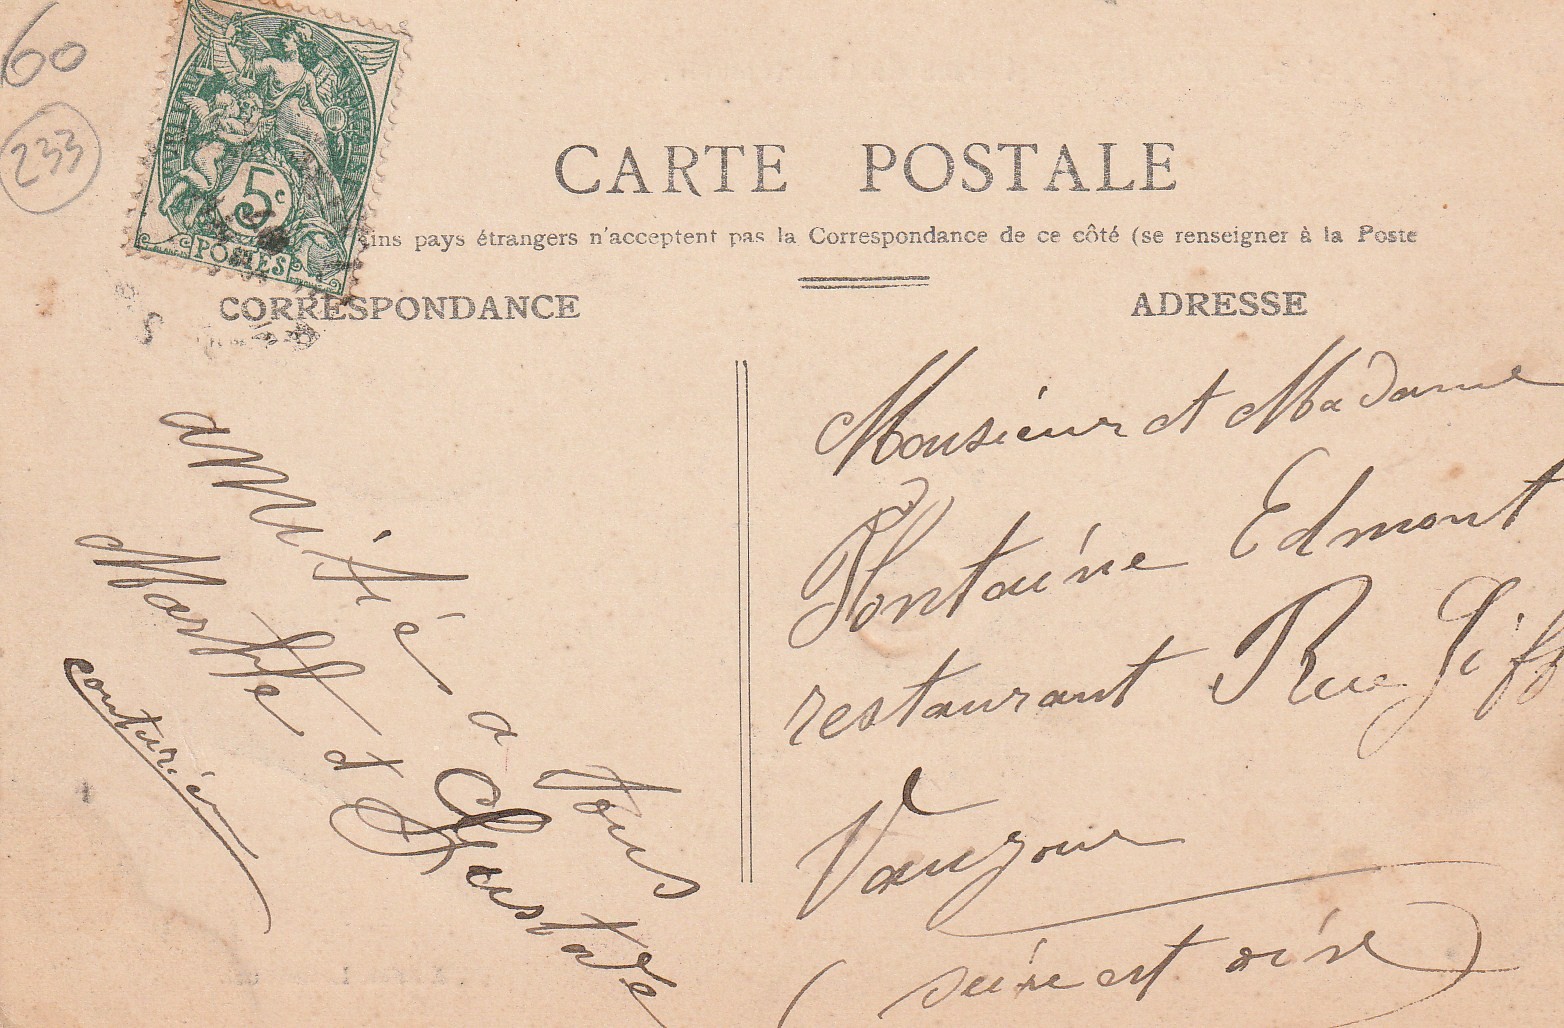 60
233
5c
POSTES
CARTE POSTALE
ins pays étrangers n'acceptent pas la Correspondance de ce côté (se renseigner à la Poste
CORRESPONDANCE
ADRESSE
amitié a tous
Marthe et Gustave
couturier
Monsieur et Madame
Fontaine Edmont
restaurant Rue
(seine et oise)